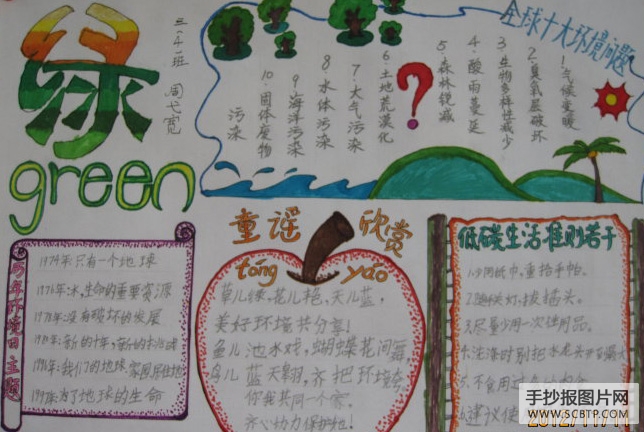 绿
green
三·(4)班
周弋宽
全球十大环境问题
1.气候变暖
2.臭氧层破坏
3.生物多样性减少
4.酸雨蔓延
5.森林锐减
6.土地荒漠化
7.大气污染
8.水体污染
9.海洋污染
10.固体废物污染
?
历年环境日主题
1974年只有一个地球
1976年水,生命的重要资源
没有破坏的发展
新的十年,新的
我们的地球
为了地球的生命
童谣欣赏
tóng yáo
草儿绿,花儿艳,天儿蓝,
美好环境共分享!
鱼儿池水戏,蝴蝶花间舞
鸟儿蓝天翱,齐把环境夸,
你我共同一个家,
齐心协力保护他!
低碳生活准则若干
1.少用纸巾,重拾手帕。
2.随手关灯,拔插头。
3.尽量少用一次性用品。
4.洗涤时别把水龙头开至最大
5.不食用
6.建议使
2012/11/11
手抄报图片网
WWW.SCBTP.COM